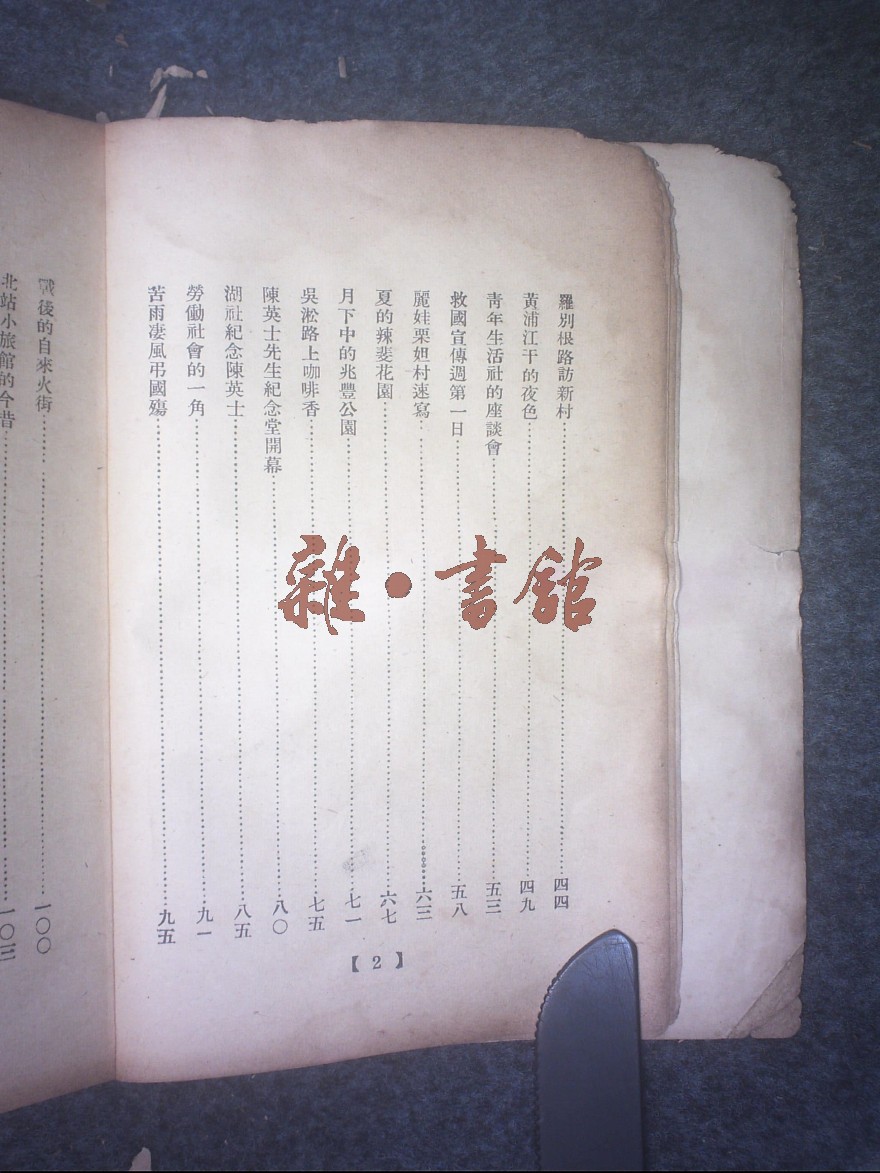 羅別根路訪新村……四四
黃浦江干的夜色……四九
靑年生活社的座談會……五三
救國宣傳週第一日……五八
麗娃栗妲村速寫……六三
夏的辣斐花園……六七
月下中的兆豐公園……七一
吳淞路上咖啡香……七五
陳英士先生紀念堂開幕……八〇
湖社紀念陳英士……八五
勞働社會的一角……九一
苦雨凄風弔國殤……九五
【2】
戰後的自來火街……一〇〇
北站小旅館的今昔……一〇三
雜·書館